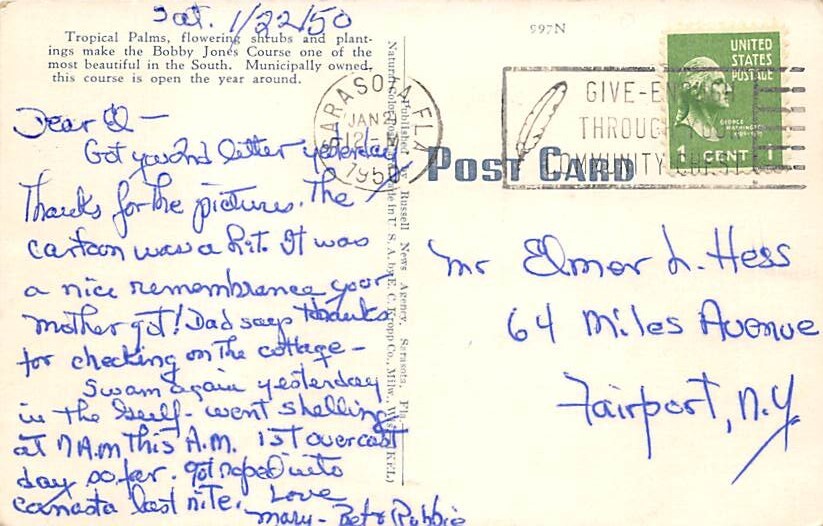 Sat. 1/22/50
Tropical Palms, flowering shrubs and plant-
ings make the Bobby Jones Course one of the
most beautiful in the South. Municipally owned,
this course is open the year around.
Dear El —
Got your 2nd letter yesterday.
Thanks for the pictures. The
cartoon was a hit. It was
a nice remembrance your
mother got! Dad says thanks
for checking on the cottage —
Swam again yesterday
in the Gulf - went shelling
at 7 A.M this A.M. 1st overcast
day so far. Got roped into
canasta last nite. Love
Mary - Bet & Robbie
997N
SARASOTA FLA
JAN 2
1950
GIVE-ENOUGH
THROUGH
COMMUNITY CHEST
UNITED
STATES
POSTAGE
GEORGE
WASHINGTON
1 CENT 1
POST CARD
Published by Russell News Agency, Sarasota, Fla.
Natural Color Post Card Made in U. S. A. by E. C. Kropp Co., Milw., Wis.
Mr Elmer L. Hess
64 Miles Avenue
Fairport, N.Y